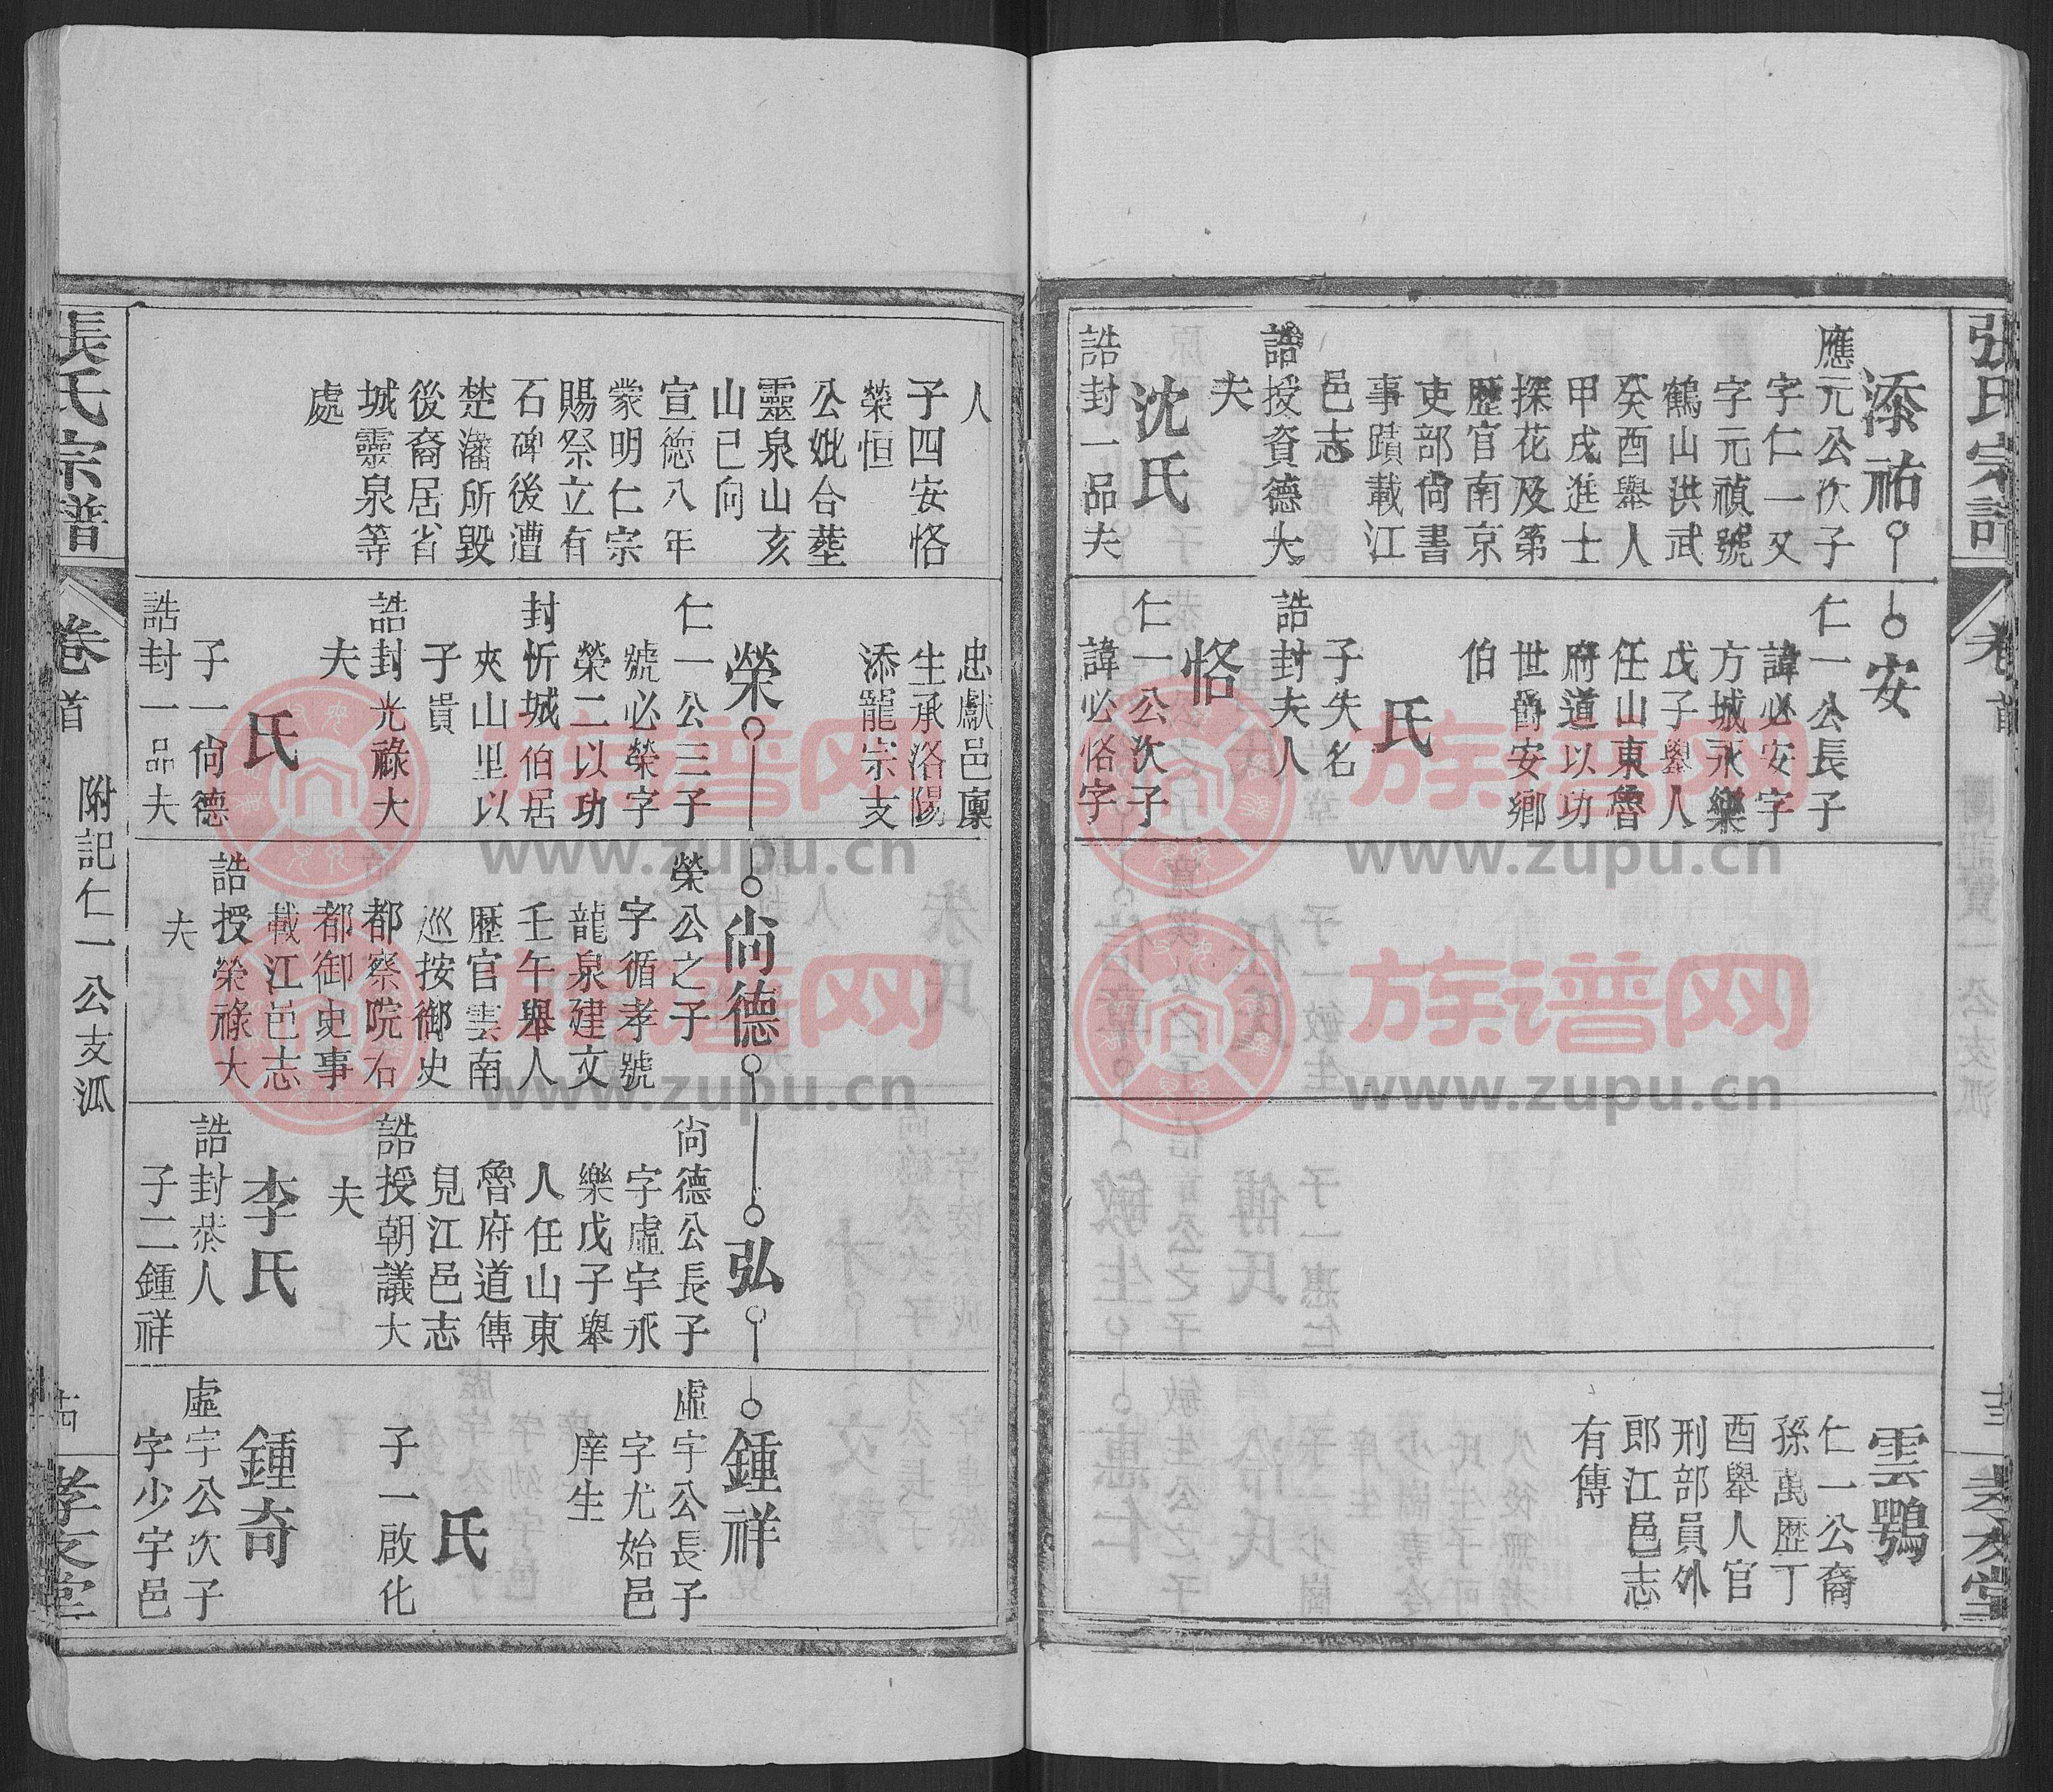 張氏宗譜
卷首
孝友堂
添祐
應元公次子
字仁一又
字元禎號
鶴山洪武
癸酉舉人
甲戌進士
探花及第
歷官南京
吏部尙書
事蹟載江
邑志
誥授資德大
夫
沈氏
誥封一品夫
安
仁一公長子
諱必安字
方城永樂
戊子舉人
任山東魯
府道以功
世爵安鄉
伯
氏
子失名
誥封夫人
恪
仁一公次子
諱必恪字
雲鶚
仁一公裔
孫萬歷丁
酉舉人官
刑部員外
郎江邑志
有傳
人
子四安恪
榮恒
公妣合塟
靈泉山亥
山巳向
宣德八年
蒙明仁宗
賜祭立有
石碑後遭
楚藩所毀
後裔居省
城靈泉等
處
忠獻邑廩
生承洛陽
添龍宗支
榮
仁一公三子
號必榮字
榮二以功
封忻城伯居
夾山里以
子貴
誥封光祿大
夫
氏
子一尙德
誥封一品夫
尙德
榮公之子
字循孝號
龍泉建文
壬午舉人
歷官雲南
巡按御史
都察院右
都御史事
載江邑志
誥授榮祿大
夫
弘
尙德公長子
字虛宇永
樂戊子舉
人任山東
魯府道傳
見江邑志
誥授朝議大
夫
李氏
誥封恭人
子二鍾祥
鍾祥
虛宇公長子
字尤始邑
庠生
氏
子一啟化
鍾奇
虛宇公次子
字少宇邑
張氏宗譜
卷首
附記仁一公支派
孝友堂
族谱网
www.zupu.cn
族谱网
www.zupu.cn
族谱网
www.zupu.cn
族谱网
www.zupu.cn